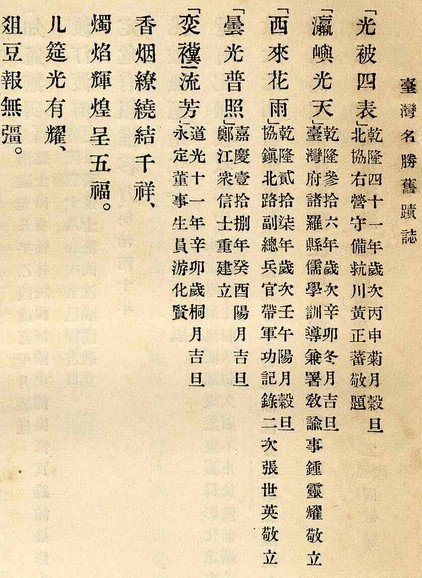 臺灣名勝舊蹟誌
「光被四表」
乾隆四十一年歲次丙申菊月穀旦
北協右營守備杭川黃正蕃敬題
「瀛嶼光天」
乾隆參拾六年歲次辛卯冬月吉旦
臺灣府諸羅縣儒學訓導兼署敎諭事鍾靈耀敬立
「西來花雨」
乾隆貳拾柒年歲次壬午陽月穀旦
協鎮北路副總兵官帶軍功記錄二次張世英敬立
「曇光普照」
嘉慶壹拾捌年癸酉陽月吉旦
鄭江衆信士重建立
「奕禩流芳」
道光十一年辛卯歲桐月吉旦
永定董事生員游化賢
香烟繚繞結千祥、
燭焰輝煌呈五福。
几筵光有耀、
爼豆報無彊。